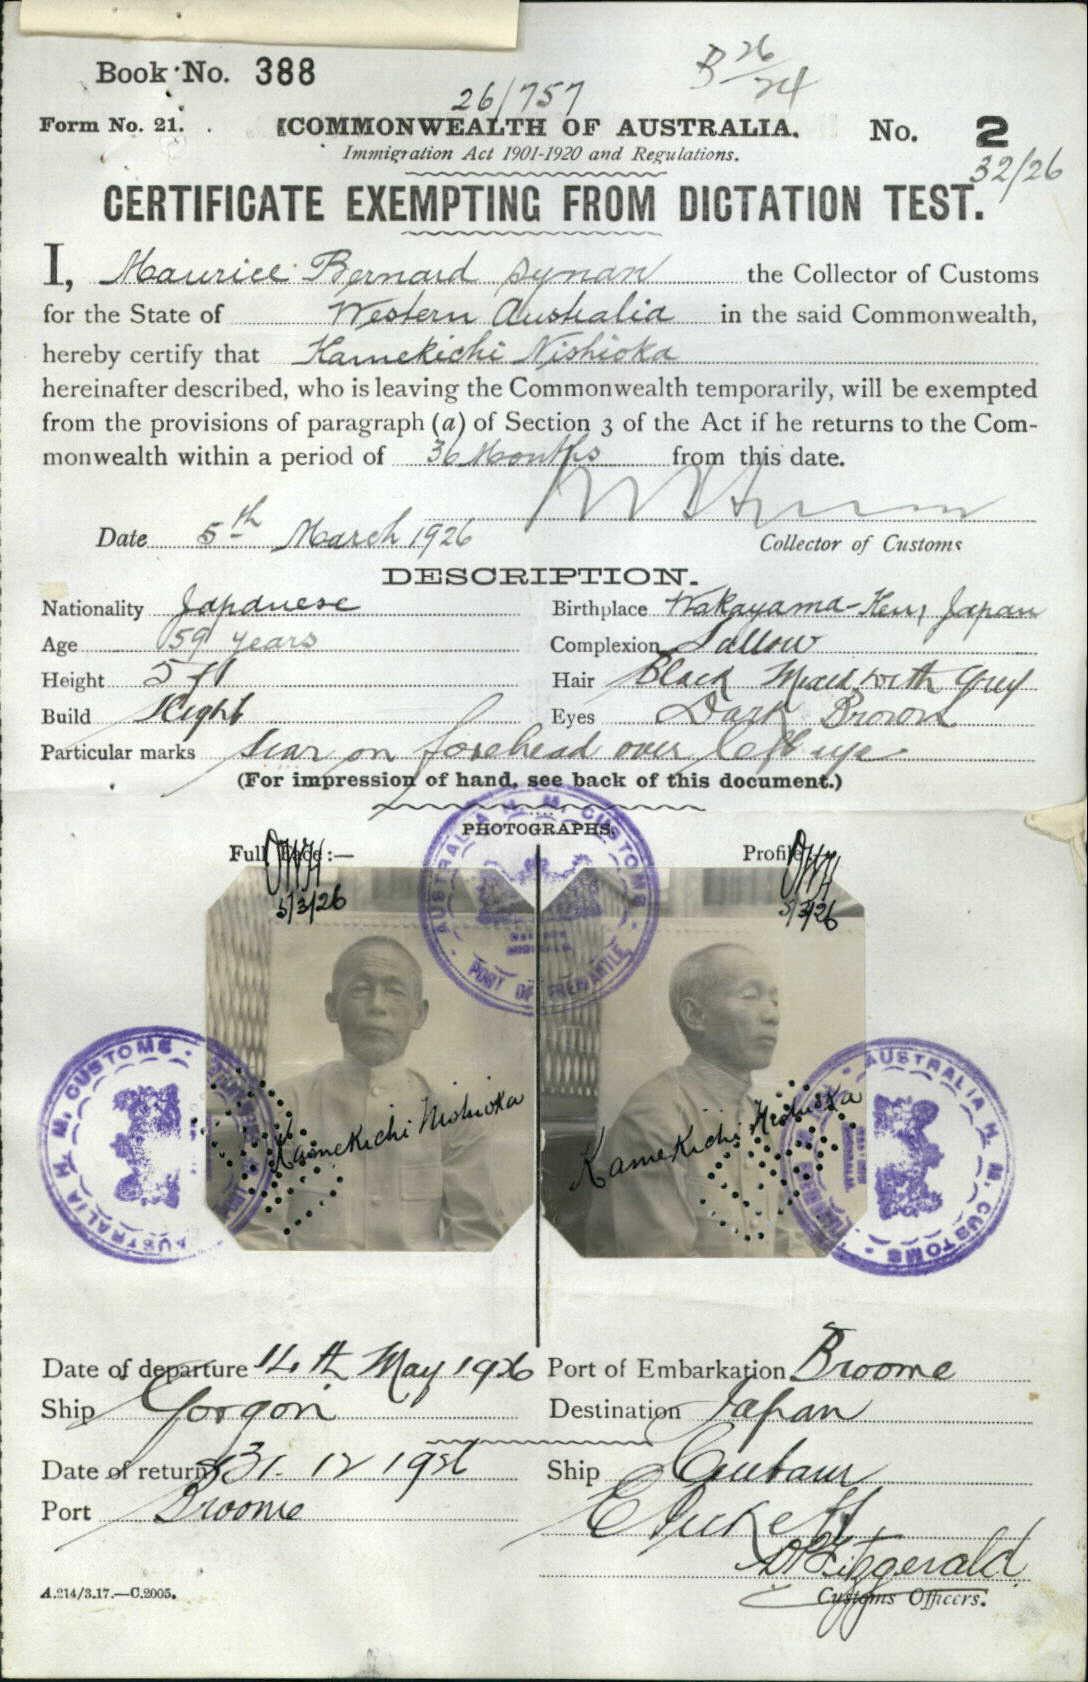 Book No. 388
B 26/24
26/757
Form No. 21.
COMMONWEALTH OF AUSTRALIA.
No. 2
Immigration Act 1901-1920 and Regulations.
32/26
CERTIFICATE EXEMPTING FROM DICTATION TEST.
I, Maurice Bernard Synan the Collector of Customs
for the State of Western Australia in the said Commonwealth,
hereby certify that Kamekichi Nishioka
hereinafter described, who is leaving the Commonwealth temporarily, will be exempted
from the provisions of paragraph (a) of Section 3 of the Act if he returns to the Com-
monwealth within a period of 36 Months from this date.
Date 5th March 1926
Collector of Customs
DESCRIPTION.
Nationality Japanese Birthplace Wakayama-Ken, Japan
Age 59 years Complexion Sallow
Height 5 ft Hair Black Mixed with Grey
Build Slight Eyes Dark Brown
Particular marks Scar on forehead over left eye
(For impression of hand, see back of this document.)
PHOTOGRAPHS.
Full Face:— Profile:
5/3/26 5/3/26
AUSTRALIA H. M. CUSTOMS
PORT OF FREMANTLE
AUSTRALIA H. M. CUSTOMS
AUSTRALIA H. M. CUSTOMS
Kamekichi Nishioka
Kamekichi Nishioka
Date of departure 14th May 1926 Port of Embarkation Broome
Ship Gorgon Destination Japan
Date of return 31. 12 1926 Ship Centaur
Port Broome
Fitzgerald
A.214/3.17.—C.2005.
Customs Officers.